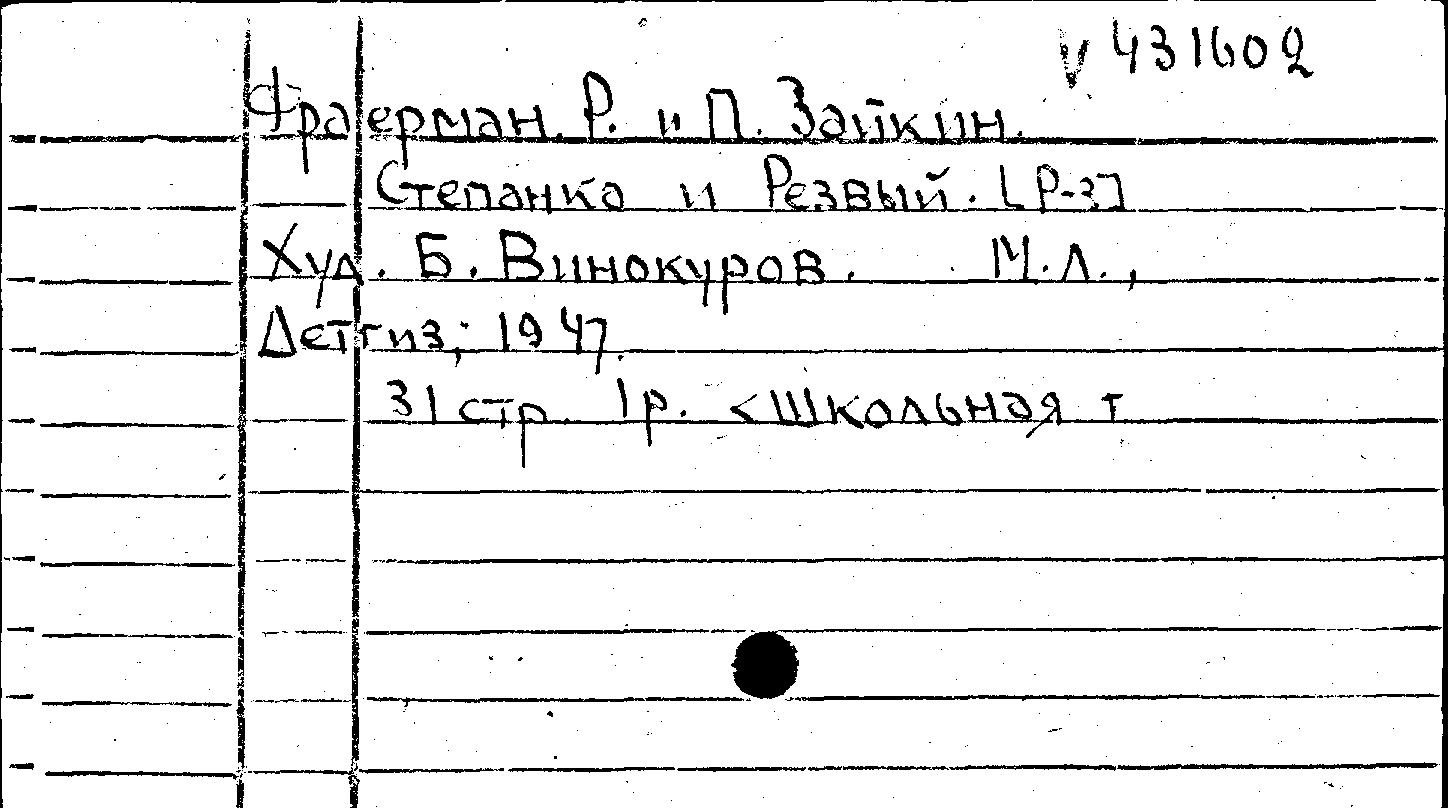 V 431602
Фраерман. Р. и П. Зайкин.
Степанко и Резвый. [Р-з]
Худ. Б. Винокуров. М.Л.,
Детгиз; 1947.
31 стр. 1р. <Школьная т